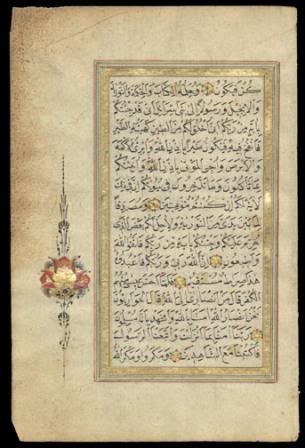 كن فيكون ويعلمه الكتاب والحكمة والتورية
والانجيل ورسولا الى بنى اسرائل انى قد جئتكم
باية من ربكم انى اخلق لكم من الطين كهيئة الطير
فانفخ فيه فيكون طيرا باذن الله وابرئ الاكمه
والابرص واحى الموتى باذن الله وانبئكم
بما تاكلون وما تدخرون فى بيوتكم ان فى ذلك
لاية لكم ان كنتم مؤمنين ومصدقا
لما بين يدى من التورية ولاحل لكم بعض الذى
حرم عليكم وجئتكم باية من ربكم فاتقوا الله
واطيعون ان الله ربى وربكم فاعبدوه
هذا صراط مستقيم فلما احس عيسى منهم
الكفر قال من انصارى الى الله قال الحواريون
نحن انصار الله امنا بالله واشهد بانا مسلمون
ربنا امنا بما انزلت واتبعنا الرسول
فاكتبنا مع الشاهدين ومكروا ومكر الله